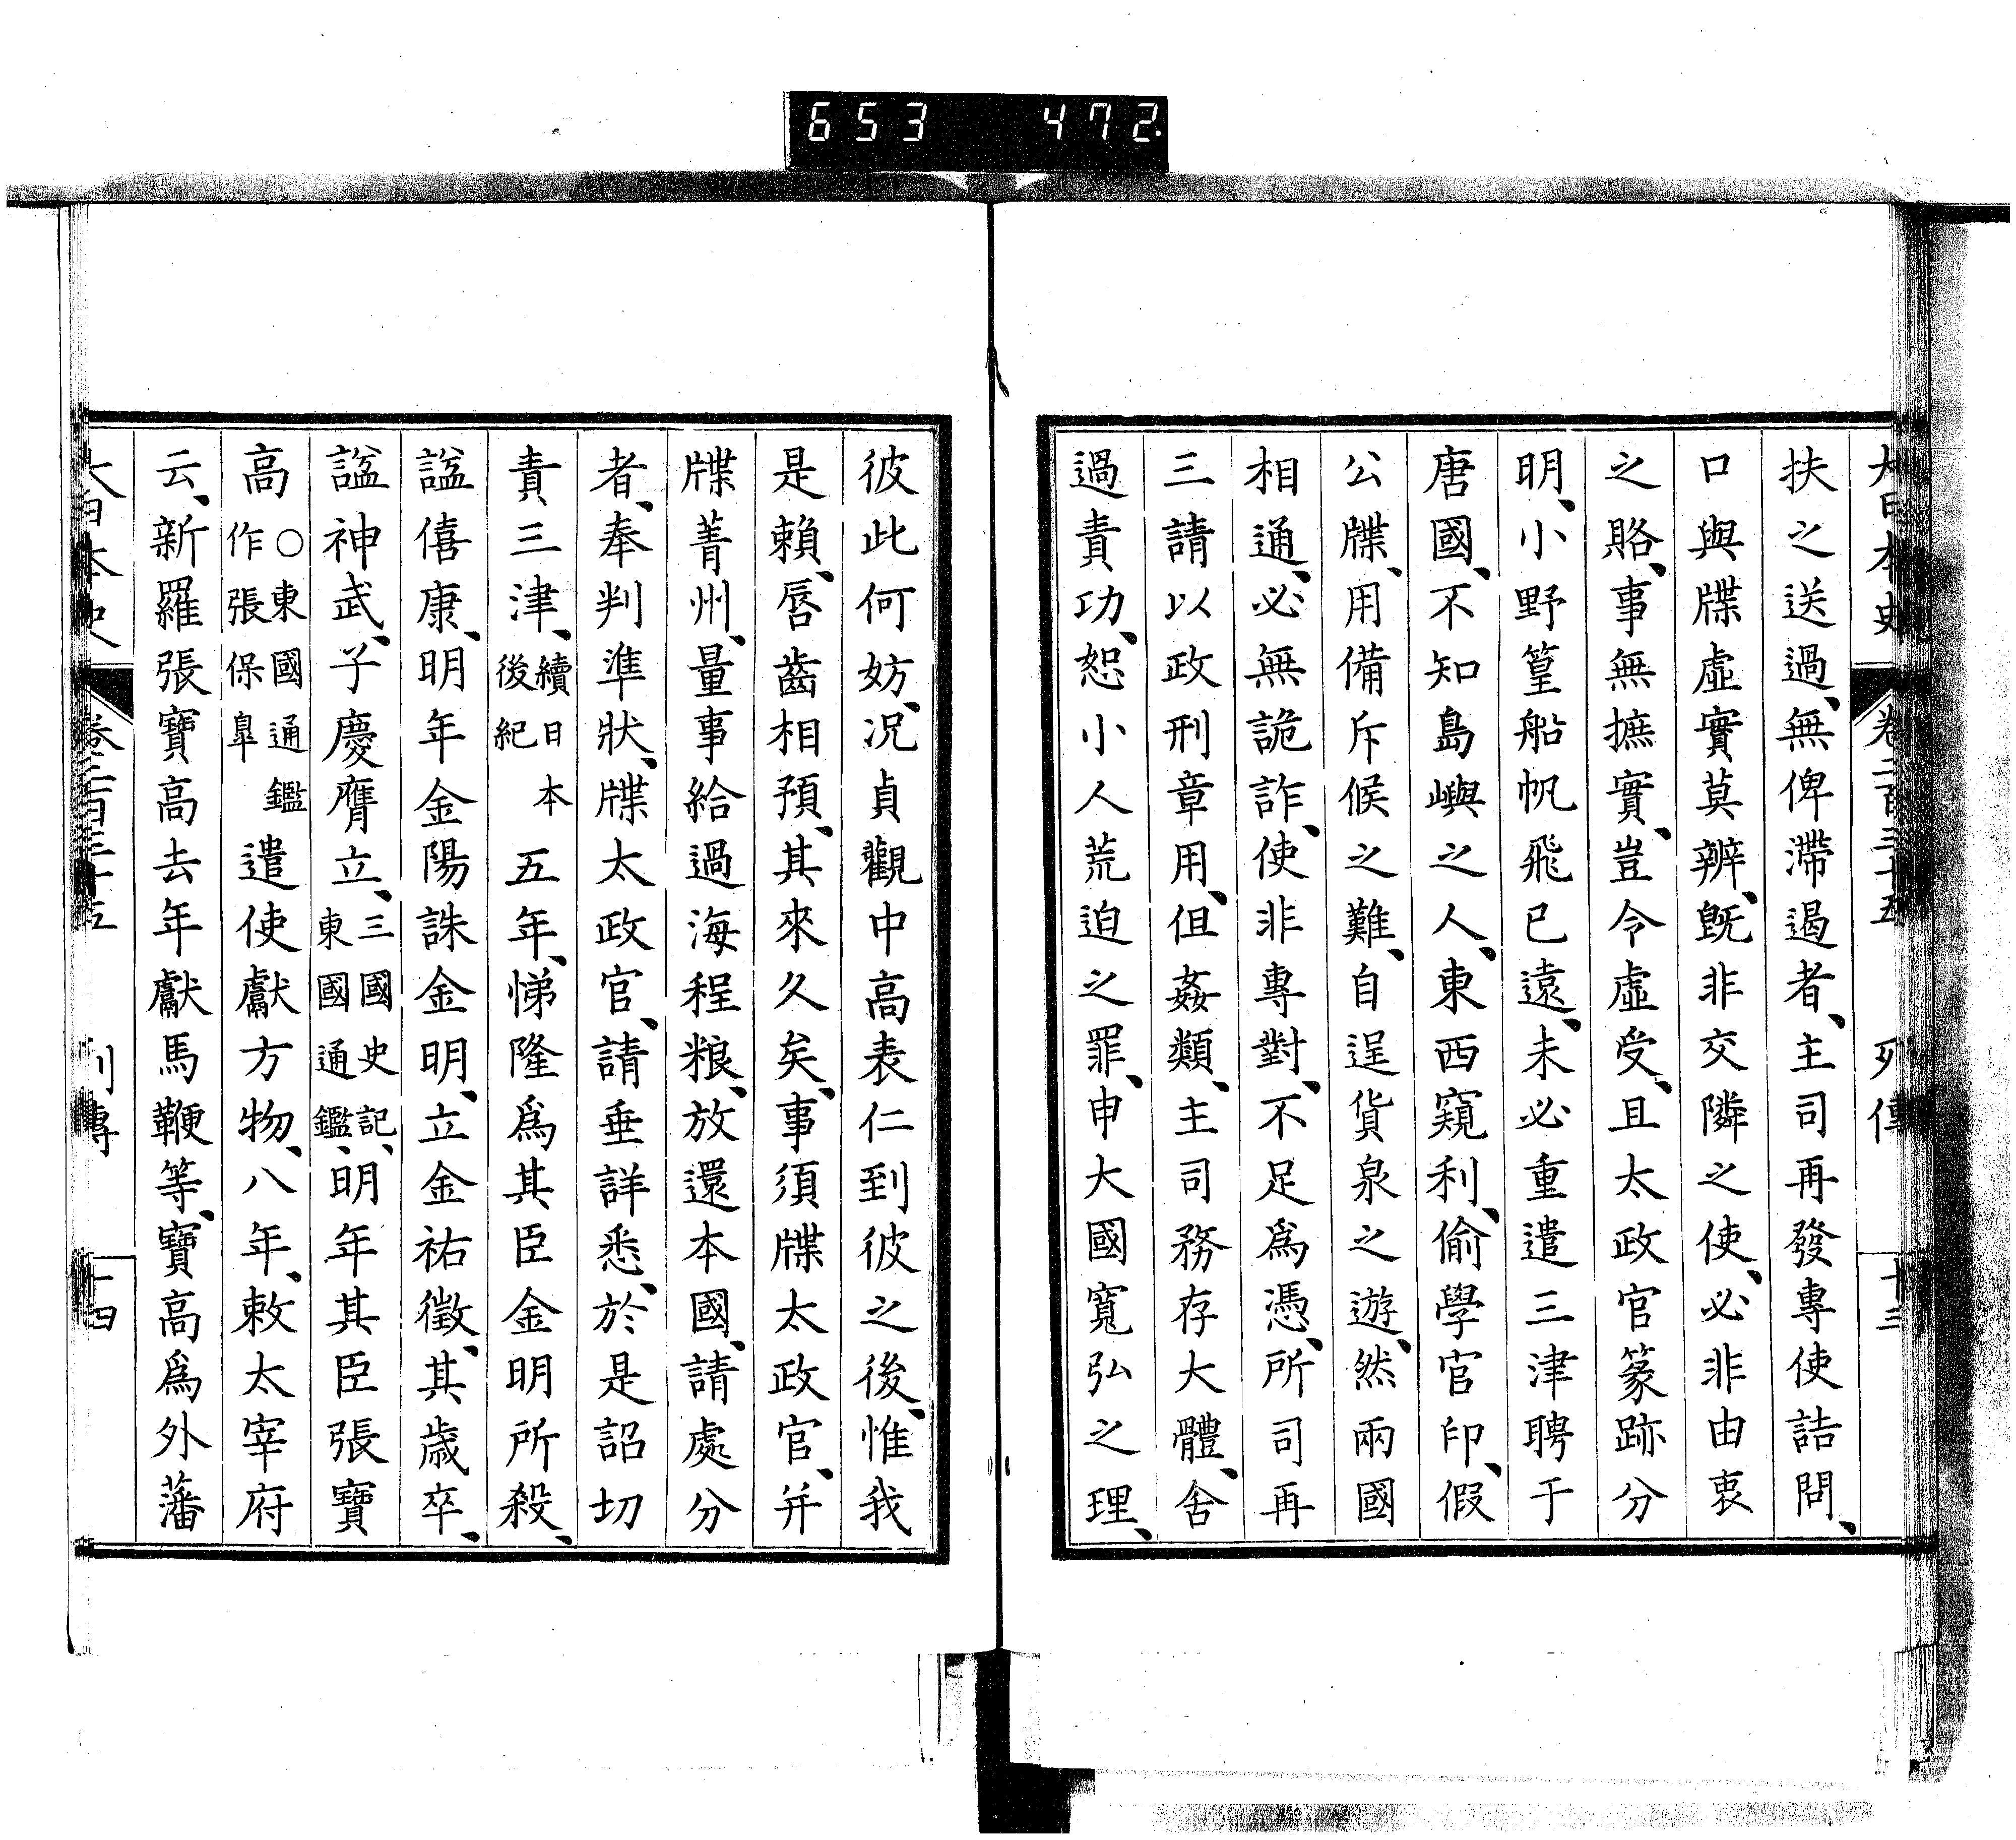 653 472
大日本史 卷二百三十五 列傳 十三
扶之送過、無俾滯遏者、主司再發專使詰問、
口與牒虛實莫辨、旣非交隣之使、必非由衷
之賂、事無摭實、豈令虛受、且太政官篆跡分
明、小野篁船帆飛已遠、未必重遣三津聘于
唐國、不知島嶼之人、東西窺利、偷學官印、假
公牒、用備斥候之難、自逞貨泉之遊、然兩國
相通、必無詭詐、使非專對、不足爲憑、所司再
三請以政刑章用、但姦類、主司務存大體、舍
過責功、恕小人荒迫之罪、申大國寬弘之理、
彼此何妨、况貞觀中高表仁到彼之後、惟我
是賴、唇齒相預、其來久矣、事須牒太政官、并
牒菁州、量事給過海程粮、放還本國、請處分
者、奉判準狀、牒太政官、請垂詳悉、於是詔切
責三津、續日本後紀五年、悌隆爲其臣金明所殺、
諡僖康、明年金陽誅金明、立金祐徵、其歲卒、
諡神武、子慶膺立、三國史記、東國通鑑、明年其臣張寶
高○東國通鑑作張保皐遣使獻方物、八年、敕太宰府
云、新羅張寶高去年獻馬鞭等、寶高爲外藩
大日本史 卷二百三十五 列傳 十四